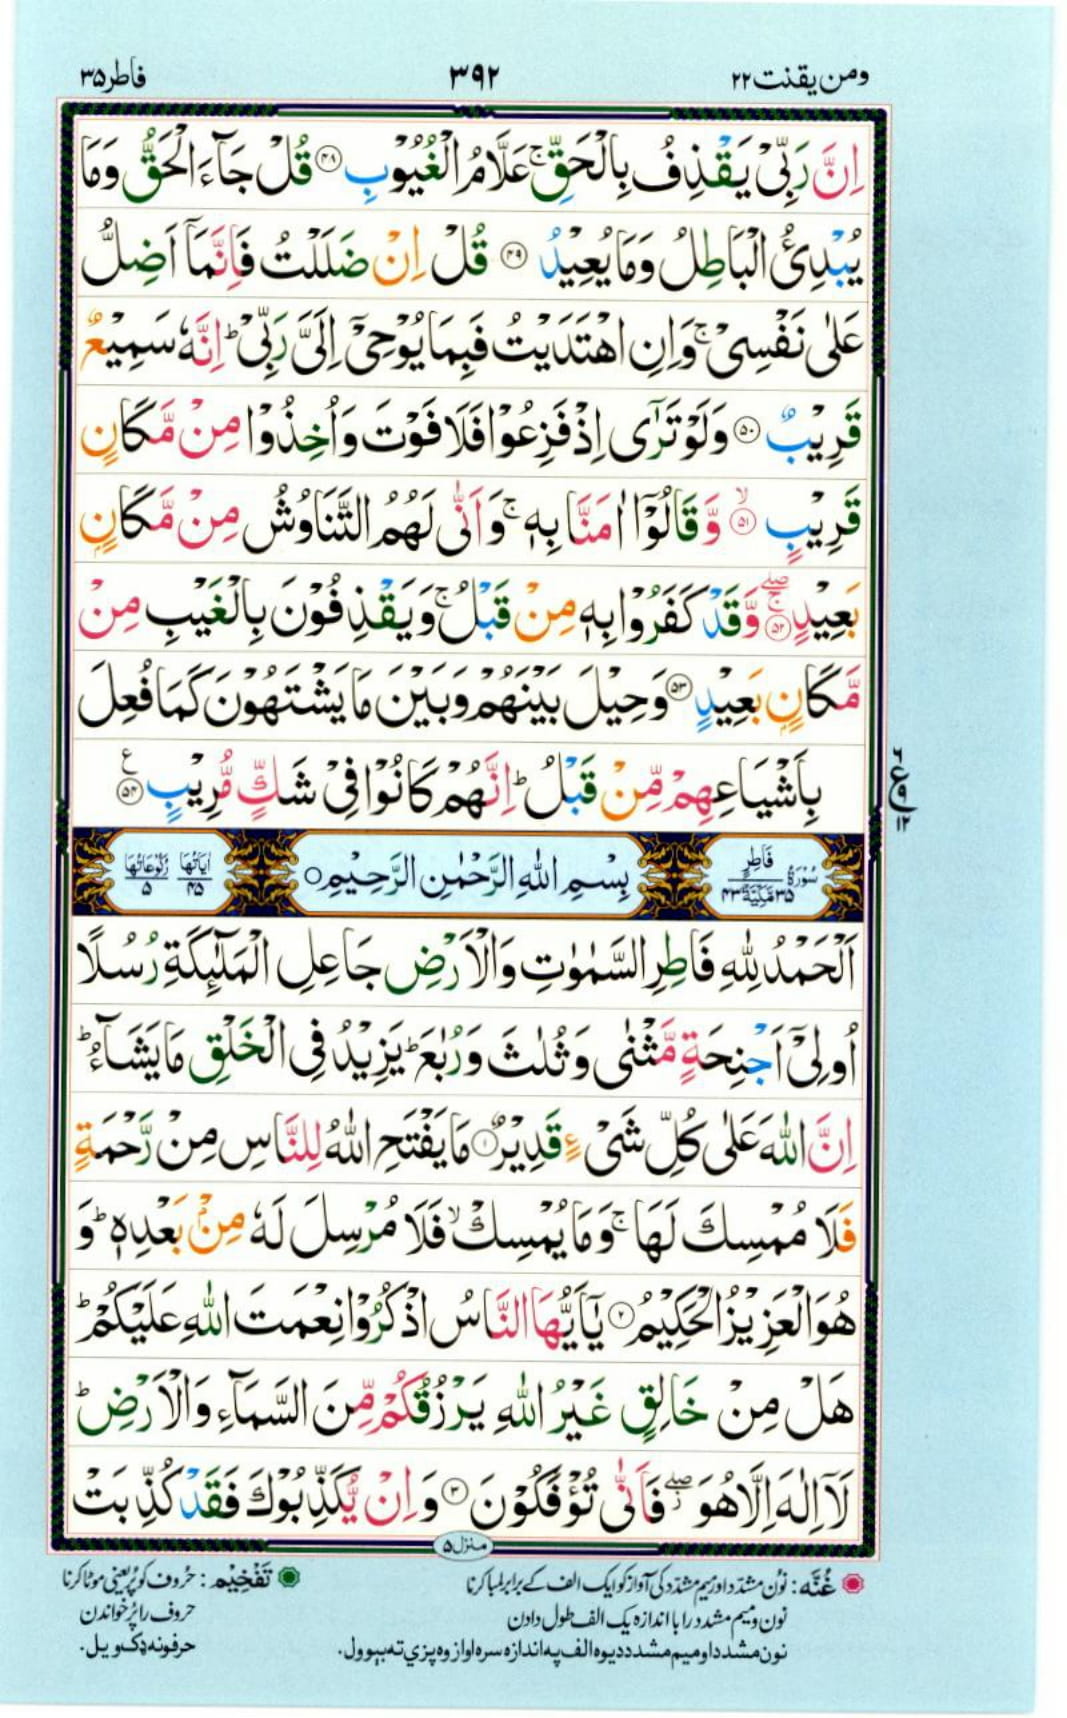 ومن يقنت ۲۲
۳۹۲
فاطر ۳۵
اِنَّ رَبِّیْ یَقْذِفُ بِالْحَقِّ ۚ عَلَّامُ الْغُیُوْبِ ۝۴۸ قُلْ جَآءَ الْحَقُّ وَمَا
یُبْدِئُ الْبَاطِلُ وَمَا یُعِیْدُ ۝۴۹ قُلْ اِنْ ضَلَلْتُ فَاِنَّمَاۤ اَضِلُّ
عَلٰی نَفْسِیْ ۚ وَاِنِ اهْتَدَیْتُ فَبِمَا یُوْحِیْۤ اِلَیَّ رَبِّیْ ؕ اِنَّهٗ سَمِیْعٌ
قَرِیْبٌ ۝۵۰ وَلَوْ تَرٰۤی اِذْ فَزِعُوْا فَلَا فَوْتَ وَاُخِذُوْا مِنْ مَّكَانٍ
قَرِیْبٍ ۝۵۱ۙ وَّقَالُوْۤا اٰمَنَّا بِهٖ ۚ وَاَنّٰی لَهُمُ التَّنَاوُشُ مِنْ مَّكَانٍۭ
بَعِیْدٍ ۝۵۲ۚۖ وَّقَدْ كَفَرُوْا بِهٖ مِنْ قَبْلُ ۚ وَیَقْذِفُوْنَ بِالْغَیْبِ مِنْ
مَّكَانٍۭ بَعِیْدٍ ۝۵۳ وَحِیْلَ بَیْنَهُمْ وَبَیْنَ مَا یَشْتَهُوْنَ كَمَا فُعِلَ
بِاَشْیَاعِهِمْ مِّنْ قَبْلُ ؕ اِنَّهُمْ كَانُوْا فِیْ شَكٍّ مُّرِیْبٍ ۝۵۴ ع
۶ ع ۱۲
سُوْرَةُ فَاطِرٍ ۳۵ مَكِّیَّةٌ ۴۳
بِسْمِ اللّٰهِ الرَّحْمٰنِ الرَّحِیْمِ ○
اٰیَاتُهَا ۴۵ رُكُوْعَاتُهَا ۵
اَلْحَمْدُ لِلّٰهِ فَاطِرِ السَّمٰوٰتِ وَالْاَرْضِ جَاعِلِ الْمَلٰٓئِكَةِ رُسُلًا
اُولِیْۤ اَجْنِحَةٍ مَّثْنٰی وَثُلٰثَ وَرُبٰعَ ؕ یَزِیْدُ فِی الْخَلْقِ مَا یَشَآءُ ؕ
اِنَّ اللّٰهَ عَلٰی كُلِّ شَیْءٍ قَدِیْرٌ ۝۱ مَا یَفْتَحِ اللّٰهُ لِلنَّاسِ مِنْ رَّحْمَةٍ
فَلَا مُمْسِكَ لَهَا ۚ وَمَا یُمْسِكْ ۙ فَلَا مُرْسِلَ لَهٗ مِنْۢ بَعْدِهٖ ؕ وَ
هُوَ الْعَزِیْزُ الْحَكِیْمُ ۝۲ یٰۤاَیُّهَا النَّاسُ اذْكُرُوْا نِعْمَتَ اللّٰهِ عَلَیْكُمْ ؕ
هَلْ مِنْ خَالِقٍ غَیْرُ اللّٰهِ یَرْزُقُكُمْ مِّنَ السَّمَآءِ وَالْاَرْضِ ؕ
لَاۤ اِلٰهَ اِلَّا هُوَ ۖؗ فَاَنّٰی تُؤْفَكُوْنَ ۝۳ وَاِنْ یُّكَذِّبُوْكَ فَقَدْ كُذِّبَتْ
منزل ۵
غُنَّه : نُون مشدّد اور میم مشدّد کی آواز کو ایک الف کے برابر لمبا کرنا
نون و میم مشدد را با اندازہ یک الف طول دادن
نون مشدد او میم مشدد د یوه الف په اندازه سره اواز وه پزي ته بېوول.
تَفْخِیْم : حُروف کو پُر یعنی موٹا کرنا
حروف را پُر خواندن
حرفونه ډک ویل.